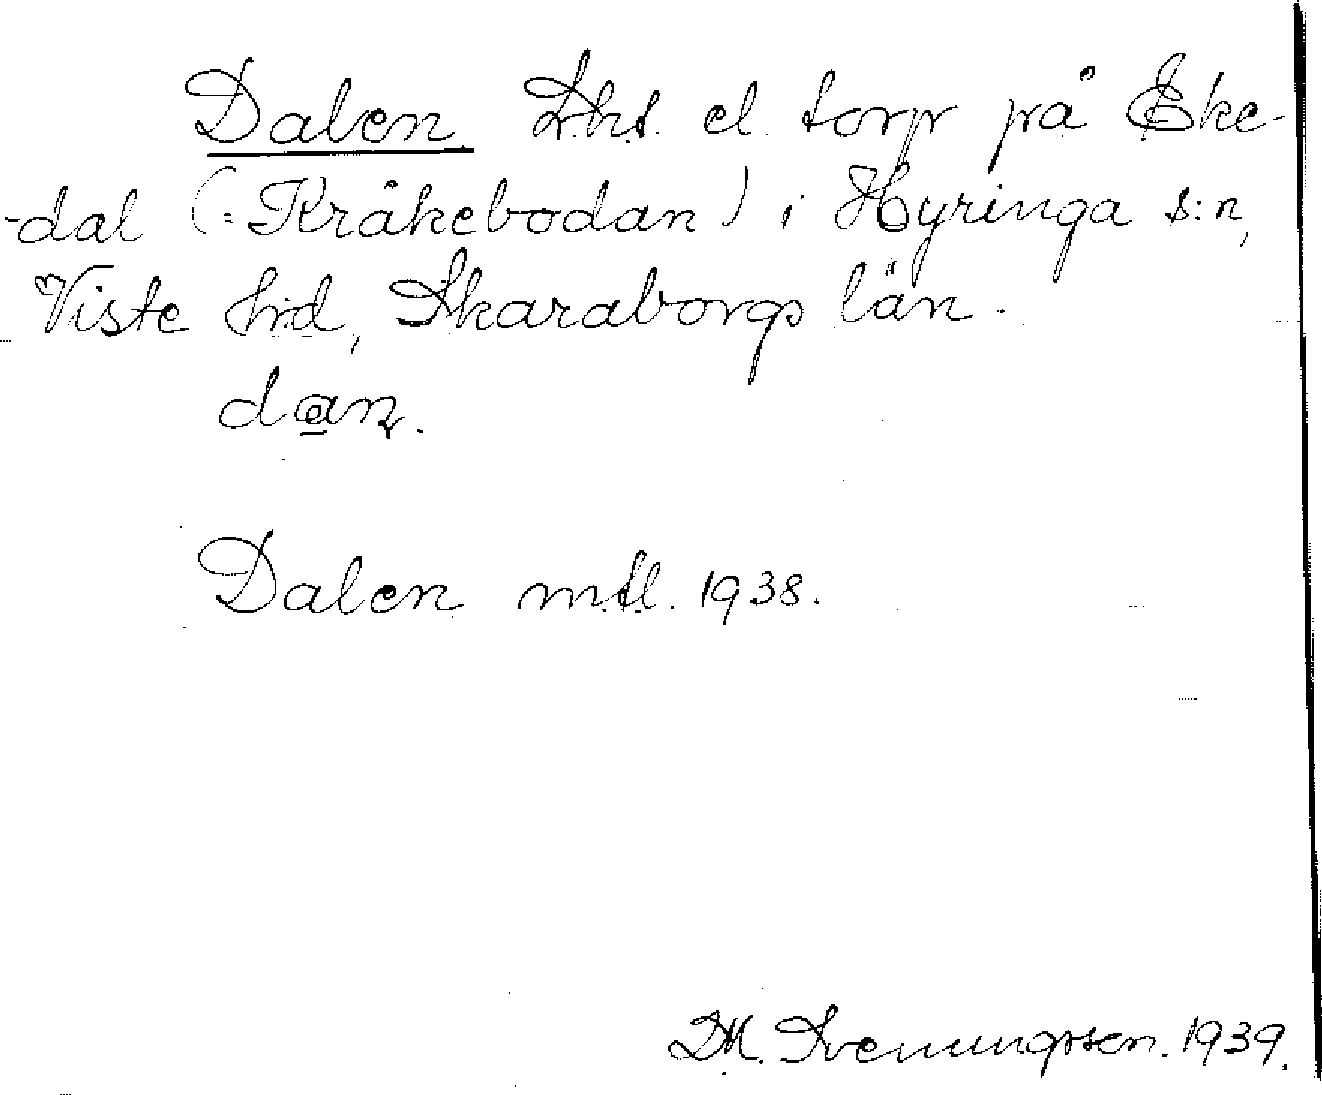 Dalen. Lht. el. torp på Eke-
-dal (= Kråkebodan) i Hyringa s:n,
Viste hrd, Skaraborgs län.
dan.
Dalen mtl. 1938.
M. Svenungsson. 1939.